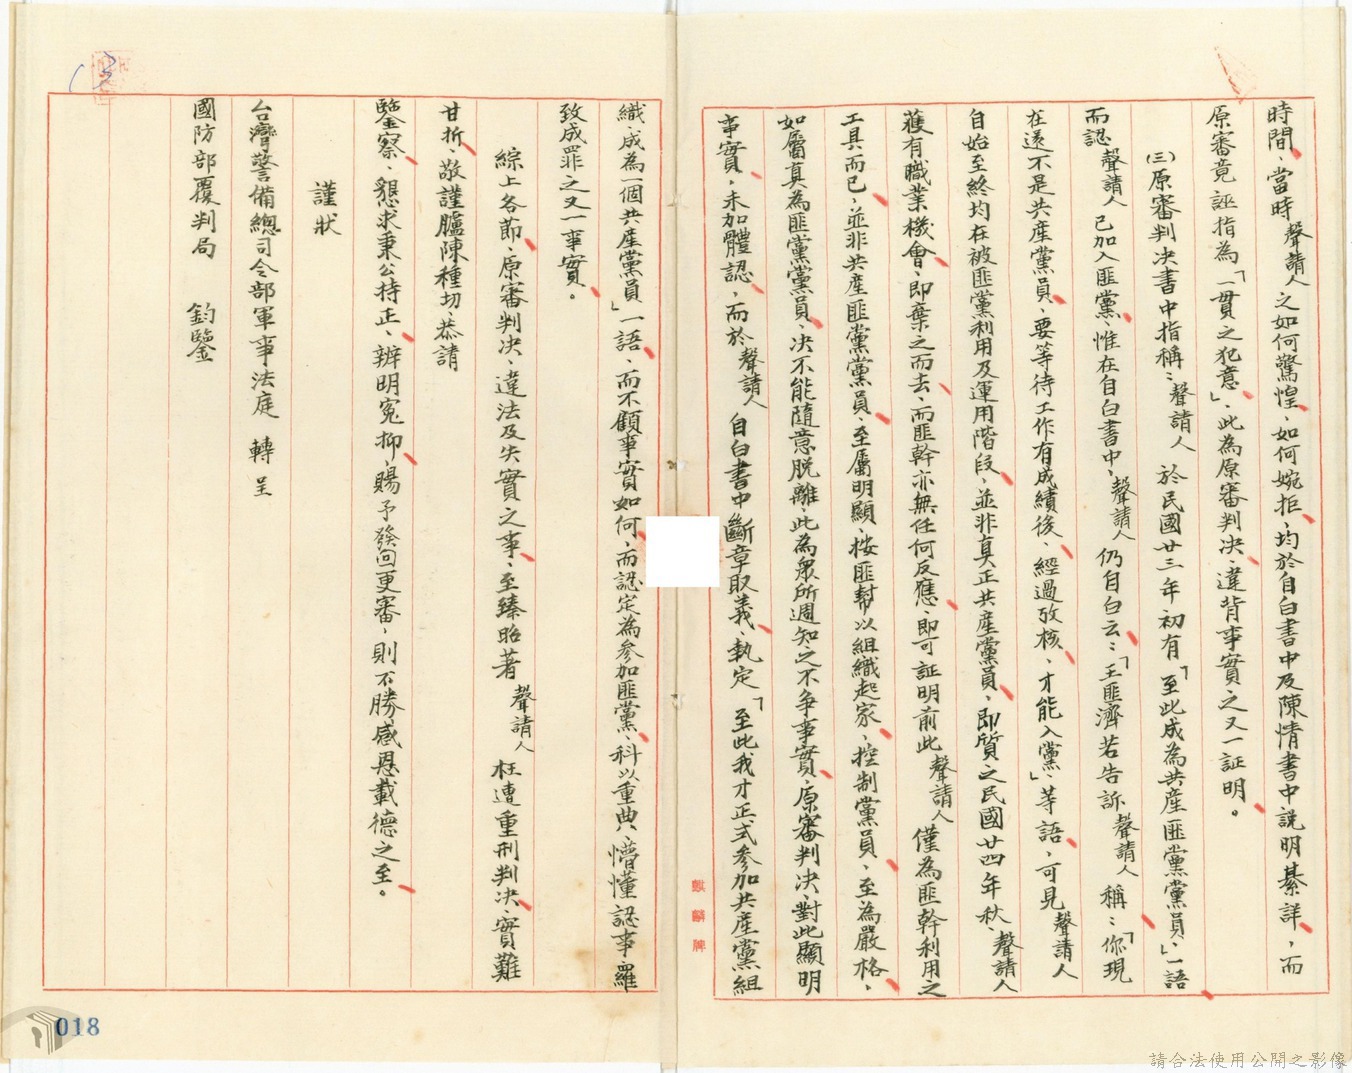 時間、當時聲請人之如何驚惶、如何婉拒、均於自白書中及陳情書中説明綦詳，而
原審竟誣指為「一貫之犯意」、此為原審判決、違背事實之又一証明。
(三)原審判決書中指稱：聲請人於民國廿三年初有「至此成為共產匪黨黨員」一語
而認聲請人已加入匪黨、惟在自白書中、聲請人仍自白云：「王匪濟若告訴聲請人稱：「你現
在還不是共產黨員、要等待工作有成績後、經過攷核、才能入黨」等語，可見聲請人
自始至終均在被匪黨利用及運用階段、並非真正共產黨員、即質之民國廿四年秋、聲請人
獲有職業機會、即棄之而去、而匪幹亦無任何反應、即可証明前此聲請人僅為匪幹利用之
工具而已、並非共產匪黨黨員、至屬明顯、按匪幫以組織起家、控制黨員、至為嚴格、
如屬真為匪黨黨員、决不能隨意脱離、此為眾所週知之不争事實、原審判决、對此顯明
事實，未加體認，而於聲請人自白書中斷章取義、執定「至此我才正式參加共產黨組
織、成為一個共產黨員」一語、而不顧事實如何、而認定為參加匪黨、科以重典、懵懂認事、羅
致成罪之又一事實。
綜上各節、原審判决、違法及失實之事、至臻昭著聲請人枉遭重刑判决、實難
甘折、敬謹臚陳種切、恭請
鑒察、懇求秉公持正、辨明冤抑、賜予發回更審，則不勝感恩載德之至。
謹狀
台灣警備總司令部軍事法庭 轉呈
國防部覆判局 鈞鑒
麒麟牌
018
請合法使用公開之影像